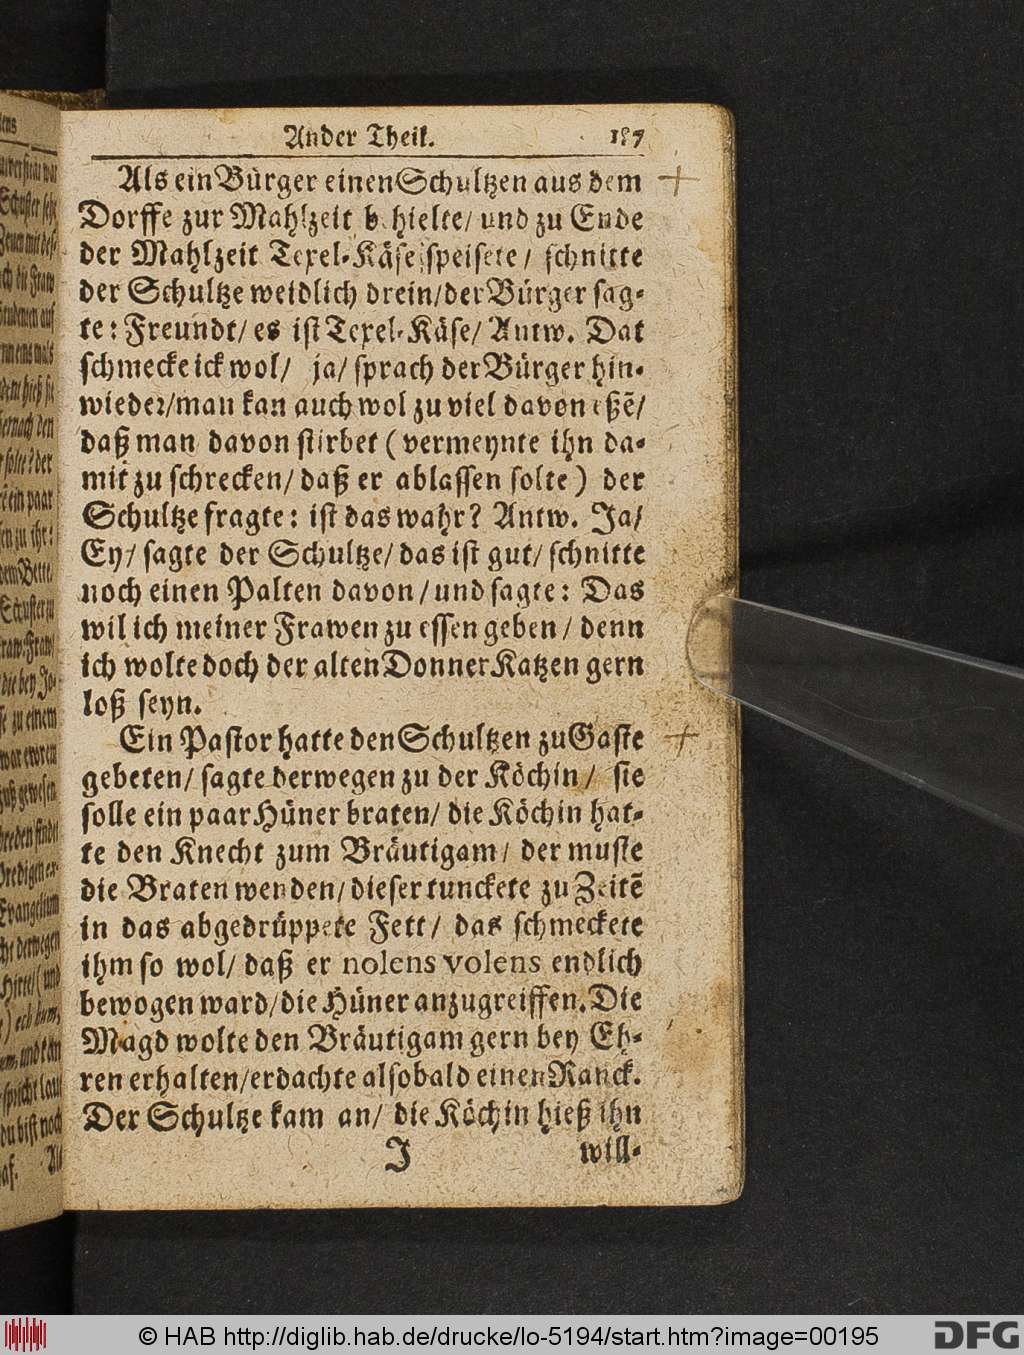 Ander Theil. 187
Als ein Bürger einen Schultzen aus dem
Dorffe zur Mahlzeit b hielte/ und zu Ende
der Mahlzeit Texel-Käse speisete/ schnitte
der Schultze weidlich drein/ der Bürger sag-
te: Freundt/ es ist Texel-Käse/ Antw. Dat
schmecke ick wol/ ja/ sprach der Bürger hin-
wieder/ man kan auch wol zu viel davon eßē/
daß man davon stirbet (vermeynte ihn da-
mit zu schrecken/ daß er ablassen solte) der
Schultze fragte: ist das wahr? Antw. Ja/
Ey/ sagte der Schultze/ das ist gut/ schnitte
noch einen Palten davon/ und sagte: Das
wil ich meiner Frawen zu essen geben/ denn
ich wolte doch der alten Donner Katzen gern
loß seyn.
Ein Pastor hatte den Schultzen zu Gaste
gebeten/ sagte derwegen zu der Köchin/ sie
solle ein paar Hüner braten/ die Köchin hat-
te den Knecht zum Bräutigam/ der muste
die Braten wenden/ dieser tunckete zu Zeitē
in das abgedrüppete Fett/ das schmeckete
ihm so wol/ daß er nolens volens endlich
bewogen ward/ die Hüner anzugreiffen. Die
Magd wolte den Bräutigam gern bey Eh-
ren erhalten/ erdachte alsobald einen Ranck.
Der Schultze kam an/ die Köchin hieß ihn
J will-
© HAB http://diglib.hab.de/drucke/lo-5194/start.htm?image=00195
DFG